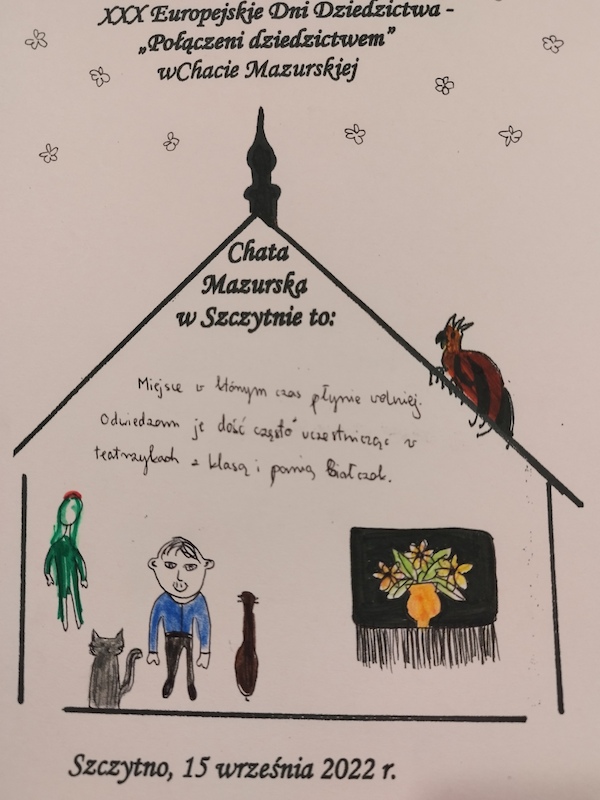 XXX Europejskie Dni Dziedzictwa -
„Połączeni dziedzictwem”
wChacie Mazurskiej
Chata
Mazurska
w Szczytnie to:
Miejsce w którym czas płynie wolniej.
Odwiedzam je dość często uczestnicząc w
teatrzykach z klasą i panią Białczak.
Szczytno, 15 września 2022 r.